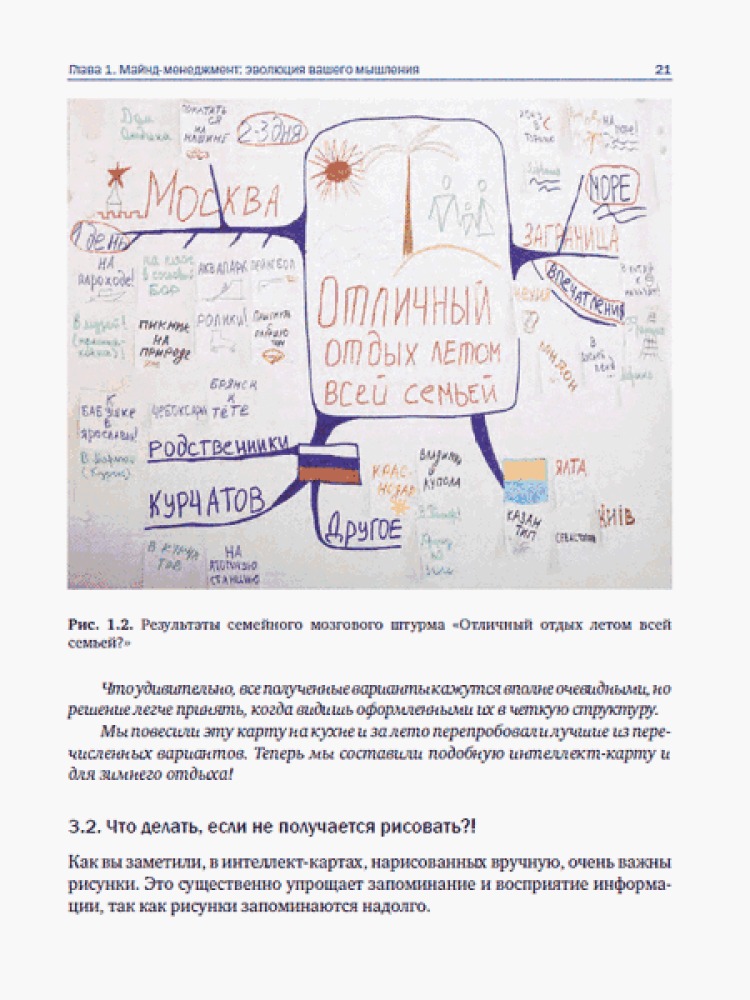 Глава 1. Майнд-менеджмент: эволюция вашего мышления
21
Дом
ПОКАТАТЬ
СЯ
НА
МАШИНЕ
2-3 дня
МОСКВА
1 день
НА
пароходе!
на пляж
в сосновый
БОР
АКВАПАРК
ПЕЙНТБОЛ
В музей!
ПИКНИК
НА
ПРИРОДЕ
РОЛИКИ!
К
БАБУШКЕ
В
ЯРОСЛАВЛЬ!
ЧЕБОКСАРЫ
БРЯНСК
К
ТЁТЕ
РОДСТВЕННИКИ
КУРЧАТОВ
НА
АТОМНУЮ
СТАНЦИЮ
Отличный
отдых летом
всей семьей
МОРЕ
ЗАГРАНИЦА
ВПЕЧАТЛЕНИЯ
ЧЕХИЯ
КРАС-
НОДАР
Другое
ЯЛТА
КАЗАН
ТИП
СЕВАСТОПОЛЬ
КИЇВ
Рис. 1.2. Результаты семейного мозгового штурма «Отличный отдых летом всей
семьей?»
Что удивительно, все полученные варианты кажутся вполне очевидными, но
решение легче принять, когда видишь оформленными их в четкую структуру.
Мы повесили эту карту на кухне и за лето перепробовали лучшие из пере-
численных вариантов. Теперь мы составили подобную интеллект-карту и
для зимнего отдыха!
3.2. Что делать, если не получается рисовать?!
Как вы заметили, в интеллект-картах, нарисованных вручную, очень важны
рисунки. Это существенно упрощает запоминание и восприятие информа-
ции, так как рисунки запоминаются надолго.